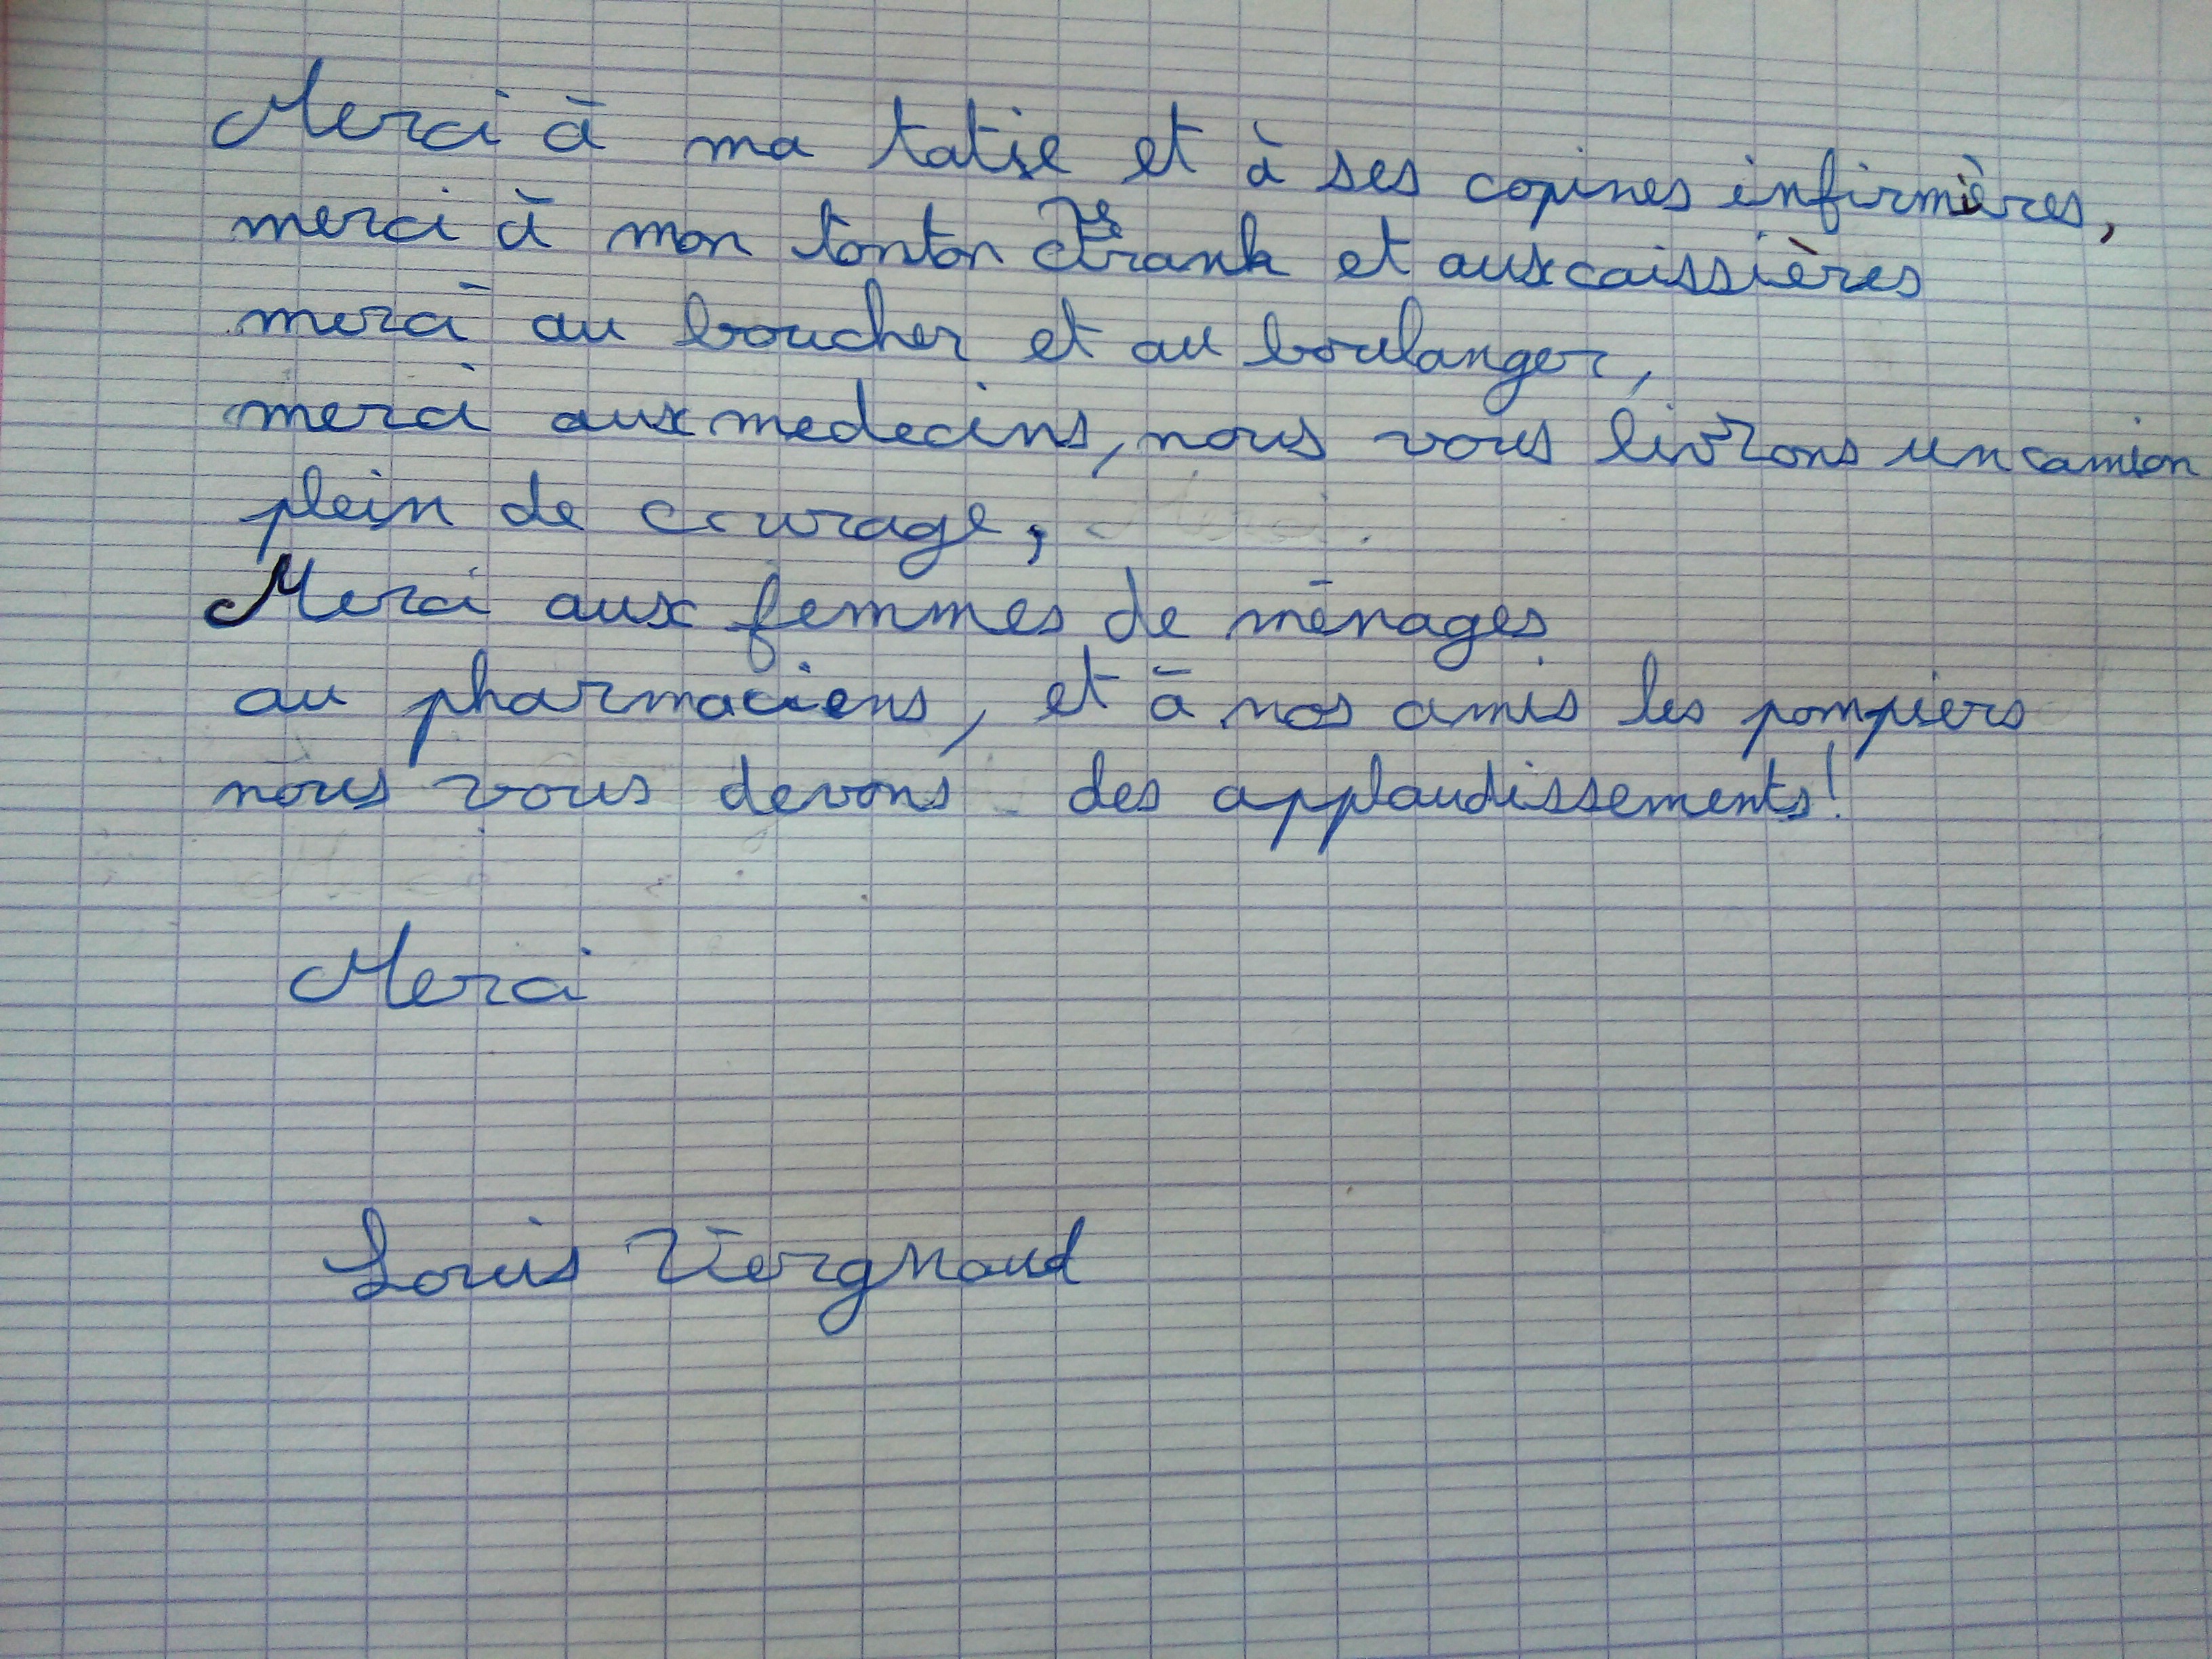 Merci à ma tatie et à ses copines infirmières,
merci à mon tonton Frank et aux caissières
merci au boucher et au boulanger,
merci aux medecins, nous vous livrons un camion
plein de courage,
Merci aux femmes de ménages
au pharmaciens, et à nos amis les pompiers
nous vous devons des applaudissements!
Merci
Louis Vergnaud